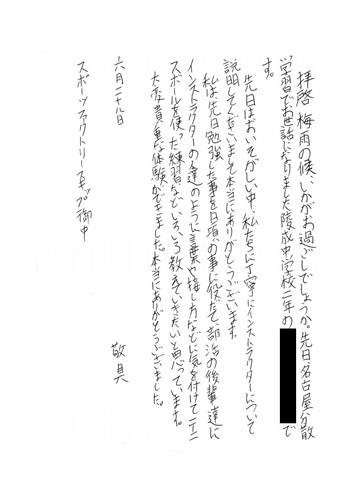 拝啓 梅雨の候、いかがお過ごしでしょうか。先日名古屋分散
学習でお世話になりました陵成中学校二年の で
す。
先日はおいそがしい中、私たちに丁寧にインストラクターについて
説明してくださいまして本当にありがとうございます。
私は先日勉強した事を日頃の事に役だて部活の後輩達に
インストラクターの人達のように言葉や接し方などに気を付けてテニ
スボールを使った練習などいろいろ教えていきたいと思っています。
大変貴重な体験ができました。本当にありがとうございました。
敬具
六月二十九日
スポーツファクトリー スキップ御中